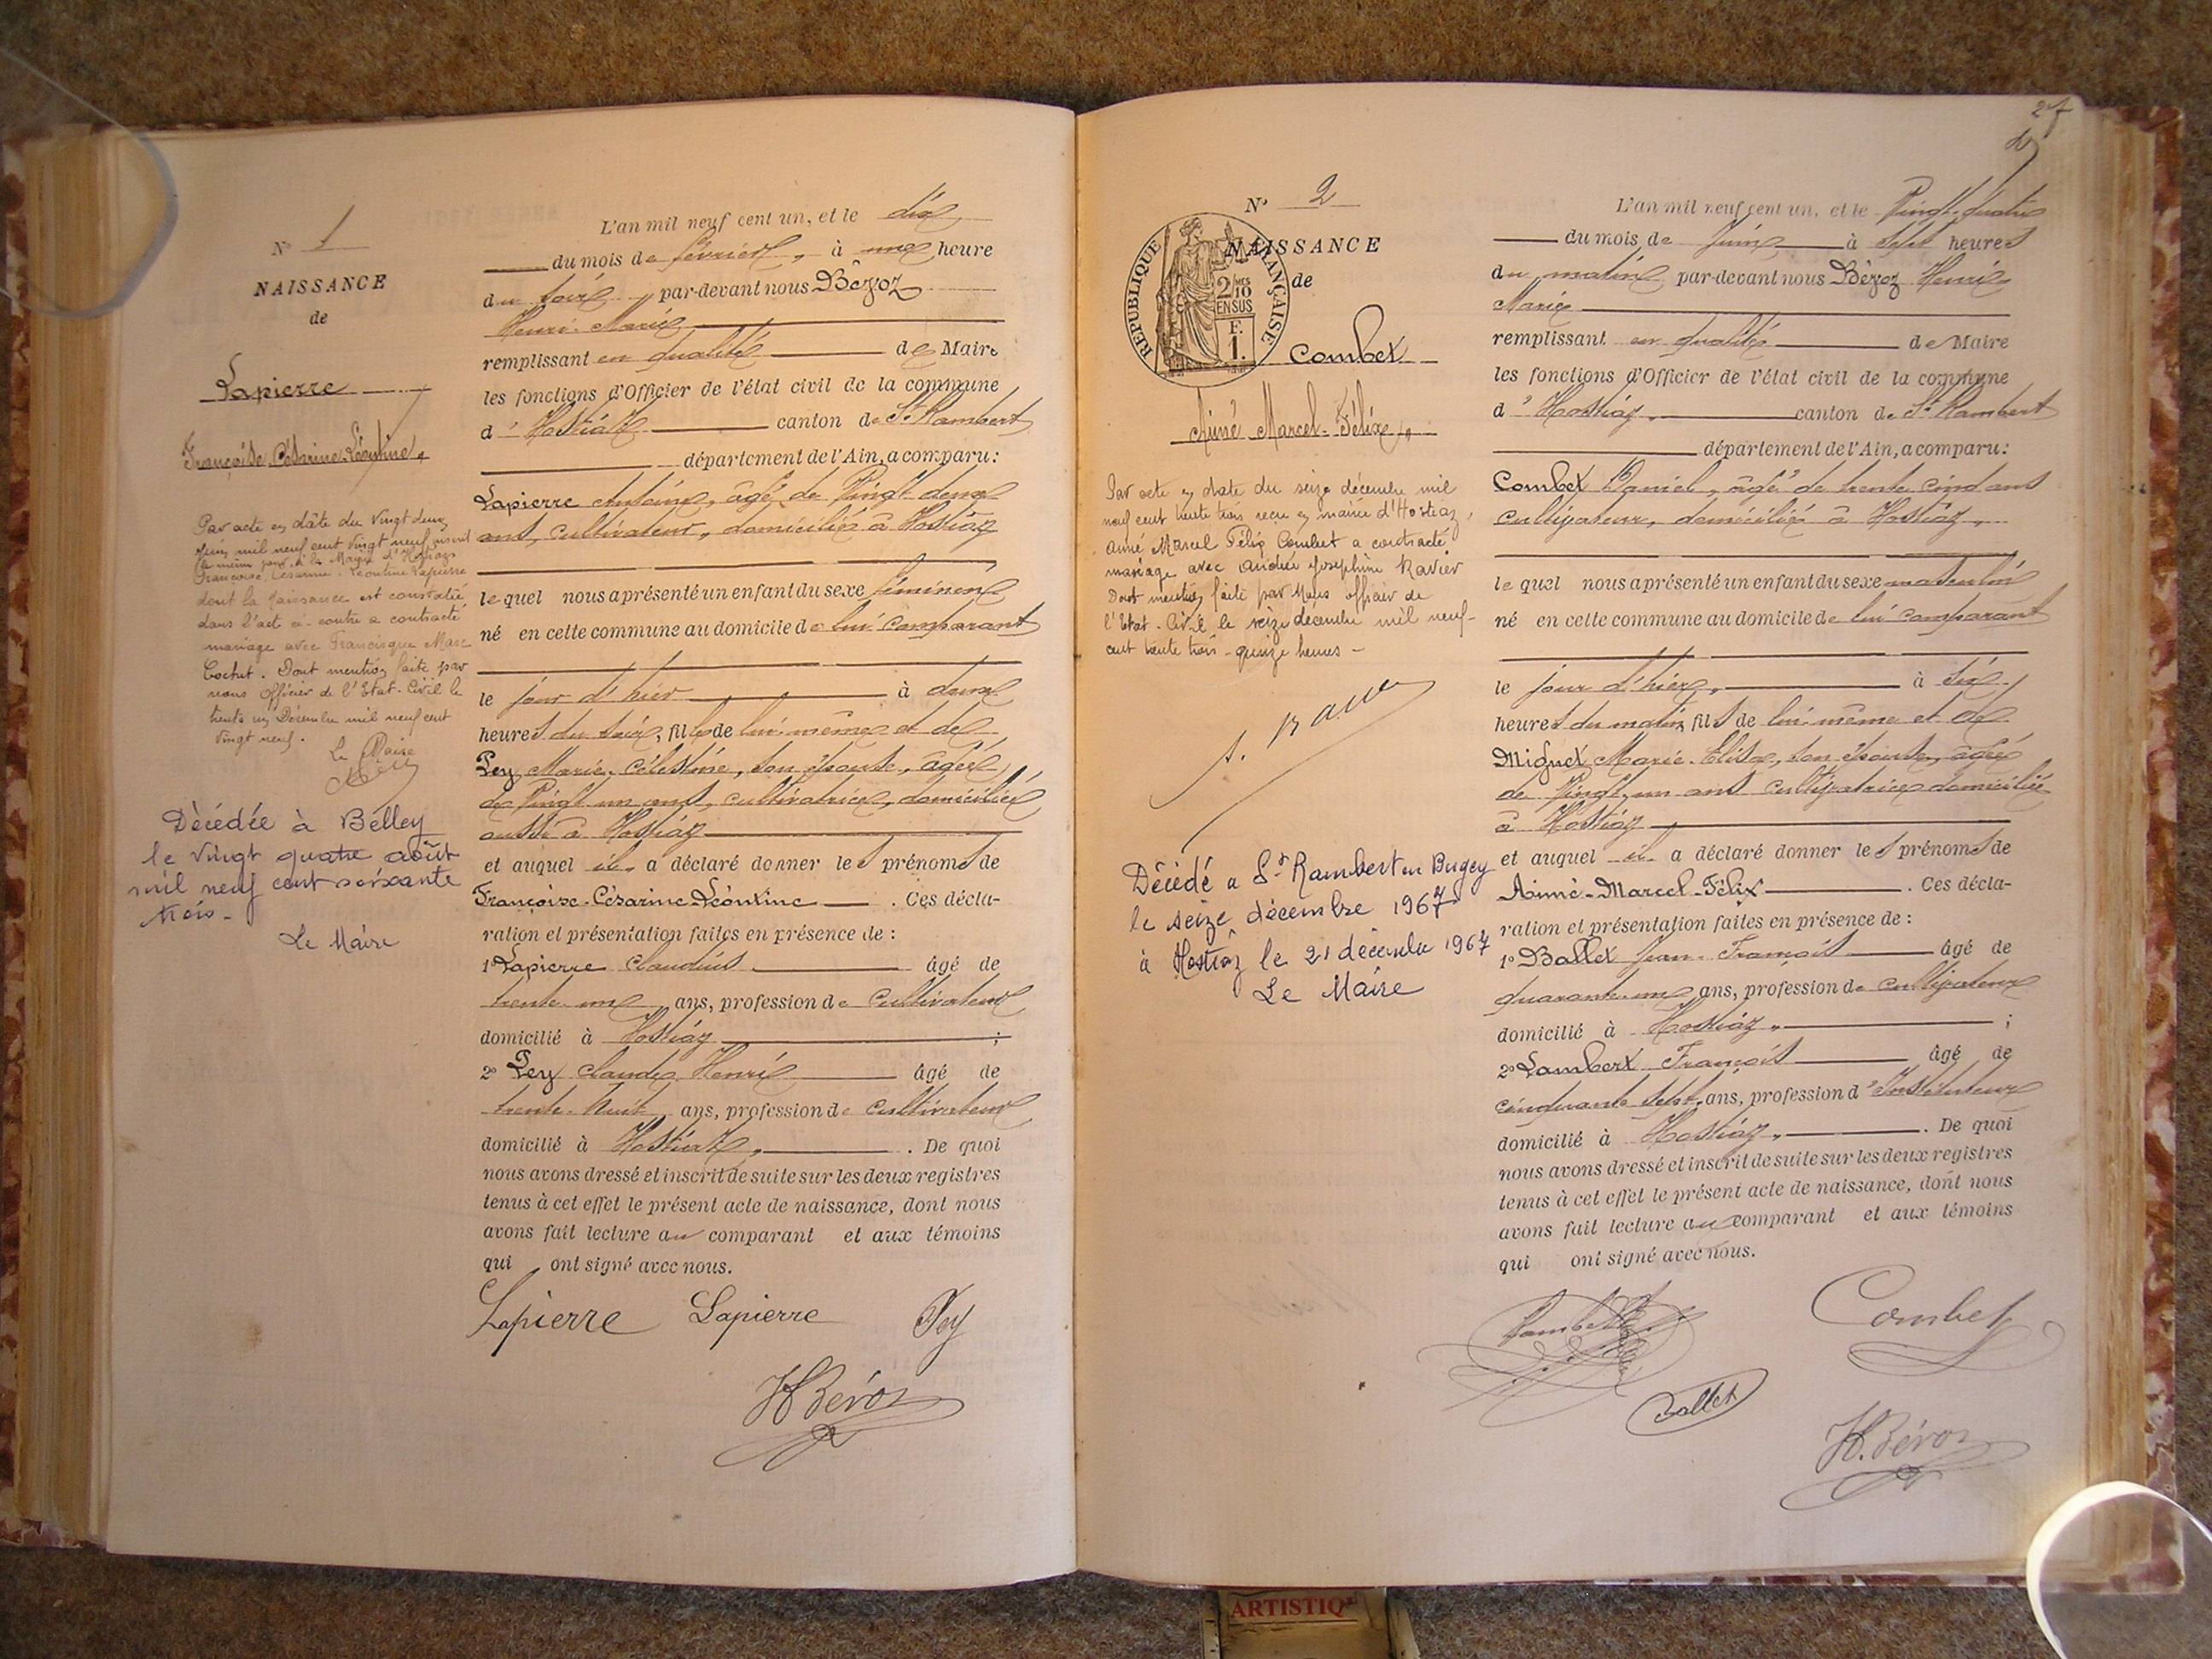 N° 1
NAISSANCE
de
Lapierre
Françoise Césarine Léontine.
Par acte en date du vingt deux
juin mil neuf cent vingt neuf inscrit
le même jour à la Mairie d'Hostiaz
Françoise Césarine Léontine Lapierre
dont la naissance est constatée
dans l'acte ci-contre a contracté
mariage avec Francisque Marc
Cochet. Dont mention faite par
nous officier de l'Etat-Civil le
trente un Décembre mil neuf cent
vingt neuf.
Le Maire
Décédée à Belley
le vingt quatre août
mil neuf cent soixante
trois -
Le Maire
L'an mil neuf cent un, et le dix
du mois de février, à une heure
du soir par-devant nous Bézoz
Henri-Marie
remplissant en qualité de Maire
les fonctions d'Officier de l'état civil de la commune
d'Hostiaz canton de St Rambert
département de l'Ain, a comparu:
Lapierre Antoine, âgé de Vingt deux
ans, cultivateur, domicilié à Hostiaz
le quel nous a présenté un enfant du sexe féminin
né en cette commune au domicile de lui comparant
le jour d'hier à deux
heures du soir, fille de lui-même et de
Pey Marie-Célestine, son épouse, âgée
de Vingt un ans, cultivatrice, domiciliée
aussi à Hostiaz
et auquel il a déclaré donner les prénoms de
Françoise-Césarine-Léontine. Ces décla-
ration et présentation faites en présence de :
1° Lapierre Claudius âgé de
trente un ans, profession de Cultivateur
domicilié à Hostiaz ;
2° Pey Claude Henri âgé de
trente-huit ans, profession de Cultivateur
domicilié à Hostiaz. De quoi
nous avons dressé et inscrit de suite sur les deux registres
tenus à cet effet le présent acte de naissance, dont nous
avons fait lecture au comparant et aux témoins
qui ont signé avec nous.
Lapierre Lapierre Pey
H Bézoz
27
N° 2
NAISSANCE
de
REPUBLIQUE FRANÇAISE
2/10 MES
EN SUS
F.
1.
Combet
Aimé Marcel-Félix,
Par acte en date du seize décembre mil
neuf cent trente trois reçu en mairie d'Hostiaz,
Aimé Marcel Félix Combet a contracté
mariage avec Andrée Joséphine Ravier
Dont mention faite par Nous officier de
l'Etat-Civil le seize décembre mil neuf-
cent trente trois - quinze heures -
Décédé à St Rambert en Bugey
le seize décembre 1967
à Hostiaz le 21 décembre 1967
Le Maire
L'an mil neuf cent un, et le Vingt-quatre
du mois de Juin à sept heures
du matin par-devant nous Bézoz Henri
Marie
remplissant en qualité de Maire
les fonctions d'Officier de l'état civil de la commune
d'Hostiaz, canton de St Rambert
département de l'Ain, a comparu:
Combet Daniel, âgé de trente cinq ans
cultivateur, domicilié à Hostiaz,
le quel nous a présenté un enfant du sexe masculin
né en cette commune au domicile de lui comparant
le jour d'hier, à six
heures du matin fils de lui-même et de
Miguet Marie-Elisa, son épouse, âgée
de Vingt un ans cultivatrice domiciliée
à Hostiaz
et auquel il a déclaré donner les prénoms de
Aimé-Marcel-Félix. Ces décla-
ration et présentation faites en présence de :
1° Ballet Jean-François âgé de
quarante-un ans, profession de cultivateur
domicilié à Hostiaz, ;
2° Lambert François âgé de
cinquante sept ans, profession d'Instituteur
domicilié à Hostiaz,. De quoi
nous avons dressé et inscrit de suite sur les deux registres
tenus à cet effet le présent acte de naissance, dont nous
avons fait lecture au comparant et aux témoins
qui ont signé avec nous.
Lambert Combet
Ballet
H. Bézoz
ARTISTIQ